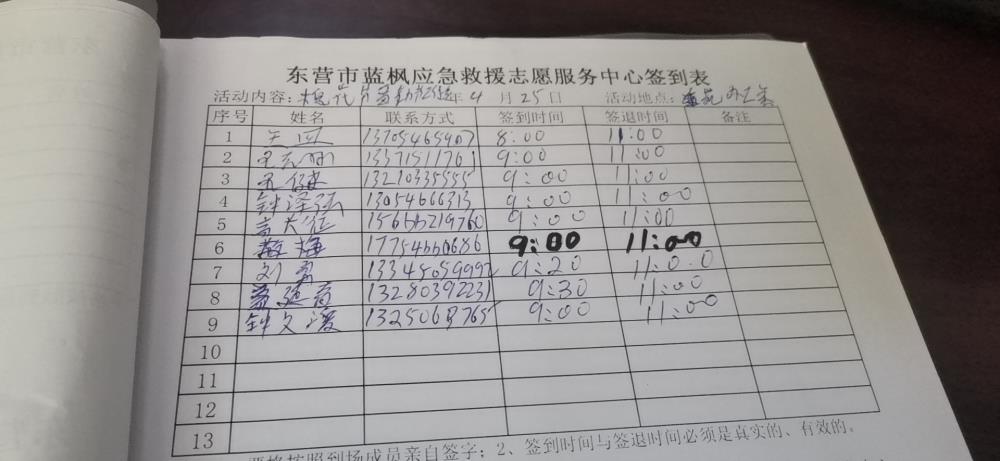 东营市蓝枫应急救援志愿服务中心签到表
活动内容: 年 4 月 25 日 活动地点:
序号 姓名 联系方式 签到时间 签退时间 备注
1 13705465907 8:00 11:00
2 13371511761 9:00 11:00
3 13210335555 9:00 11:00
4 钟泽强 13054666313 9:00 11:00
5 15666219760 9:00 11:00
6 梅 17754660686 9:00 11:00
7 刘勇 9:20 11:00
8 13280392231 9:30 11:00
9 钟文 9:00 11:00
10
11
12
13
严格按照到场成员亲自签字;2、签到时间与签退时间必须是真实的、有效的。